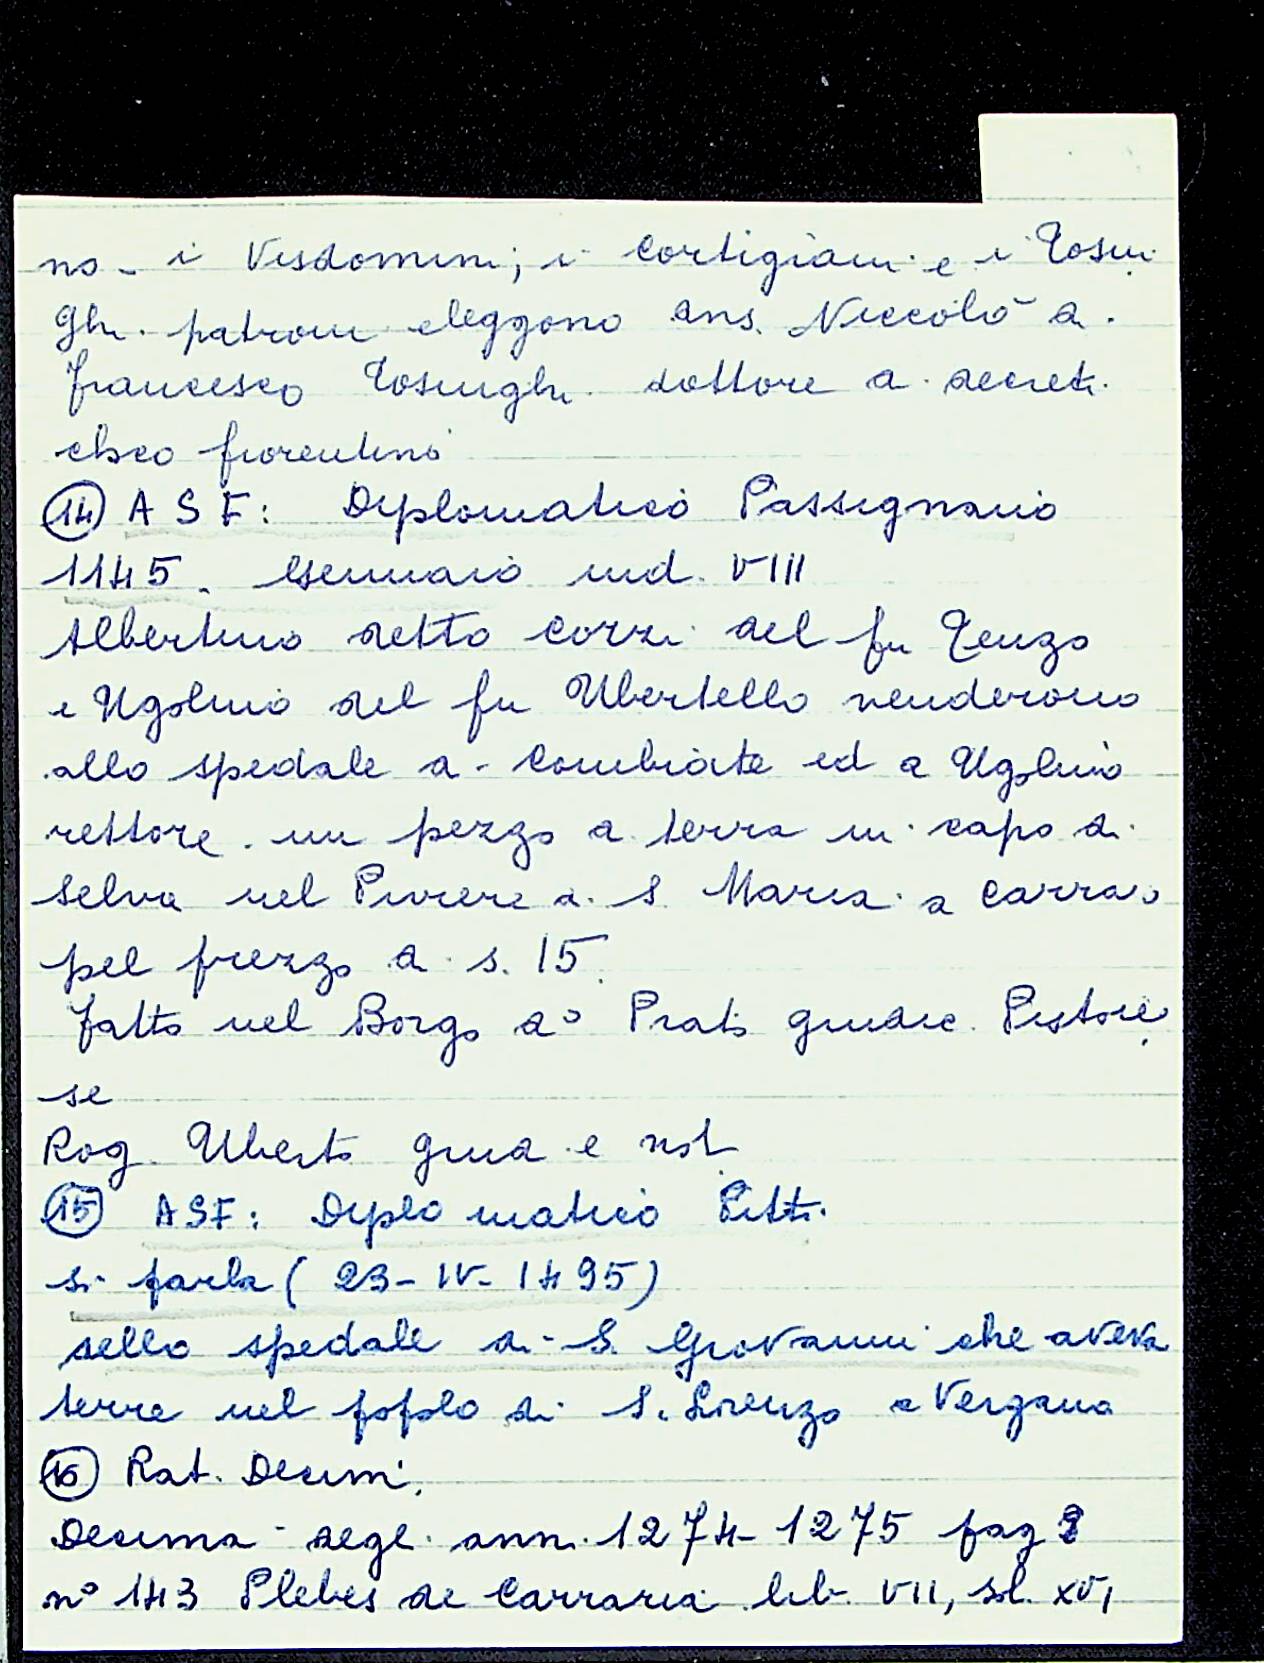 no - i Visdomini; i Cortigiani e i Tosin
ghi patroni eleggono ans. Niccolò di
Francesco Tosinghi dottore di decreti
chco fiorentino
(14) ASF: Diplomatico Passignano
1145. Gennaio ind. VIII
Albertino detto Cozzi del fu Tenzo
e Ugolino del fu Ubertello venderono
allo spedale di Combiate ed a Ugolino
rettore. un pezzo di terra in capo di
Selva nel Piviere di S. Maria a Carraia
pel prezzo di s. 15.
fatto nel Borgo di Prato giudic. Pistoie
se
Rog. Uberto giud e not
(15) ASF: Diplomatico Pitti
si parla (23-IV-1495)
dello spedale di S. Giovanni che aveva
terre nel popolo di S. Lorenzo a Vergana
(16) Rat. Decim.
Decima degl. ann. 1274-1275 pag
n° 143 Plebes de Carraria lib. VII, sol. XVI